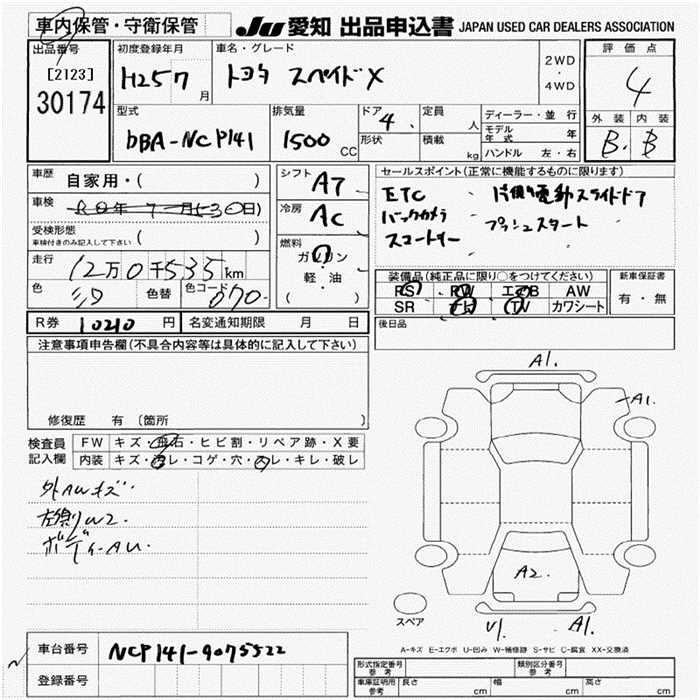 車内保管・守衛保管
JU 愛知 出品申込書 JAPAN USED CAR DEALERS ASSOCIATION
出品番号
[2123]
30174
初度登録年月
H25 7 月
車名・グレード
トヨタ スペイド X
2WD
4WD
評価点
4
外装 内装
B. B
型式
DBA-NCP141
排気量
1500 CC
ドア 4
形状
定員 人
積載 kg
ディーラー・並行
モデル年式 年
ハンドル 左・右
車歴 自家用・( )
車検
受検形態
車検付きのみ記入して下さい ( )
走行 12万0千535 km
色 シロ 色替 色コード 070
シフト AT
冷房 AC
燃料
ガソリン
軽・油
( )
セールスポイント(正常に機能するものに限ります)
ETC 片側電動スライドドア
バックカメラ プッシュスタート
スマートキー
装備品(純正品に限り○をつけてください)
PS PW エアB AW
SR ナビ TV カワシート
新車保証書
有・無
R券 10210 円 名変通知期限 月 日
後日品
注意事項申告欄(不具合内容等は具体的に記入して下さい)
修復歴 有 (箇所 )
検査員
記入欄
FW キズ・飛石・ヒビ割・リペア跡・X要
内装 キズ・汚レ・コゲ・穴・スレ・キレ・破レ
外AWキズ
左側W2.
ボディ-AU.
A1.
A1.
A2.
U1 A1.
スペア
A-キズ E-エクボ U-凹み W-補修跡 S-サビ C-腐食 XX-交換済
車台番号 NCP141-9075522
登録番号
形式指定番号
参考
類別区分番号
参考
車庫証明用
参考
長さ cm 幅 cm 高さ cm